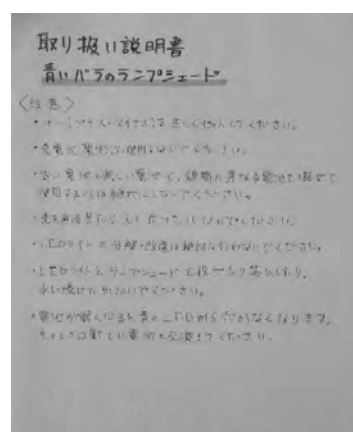 取り扱い説明書
青いバラのランプシェード
〈注意〉
・(プラス・マイナス)を正しく ください。
・充電式電池は使用しないでください。
・古い電池と新しい電池や、種類の異なる電池を混ぜて
使用することは絶対にしないでください。
・LEDライトの分解・改造は絶対に行わないでください。
・LEDライトとランプシェードを 落としたり、
水に濡けたりしないでください。
・電池が弱くなると青のLEDから付かなくなります。
新しい電池と交換してください。